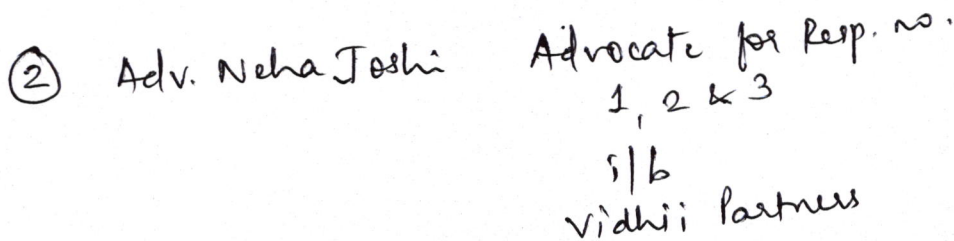 ② Adv. Neha Joshi Advocate for Resp. no.
1, 2 & 3
i/b
Vidhii Partners